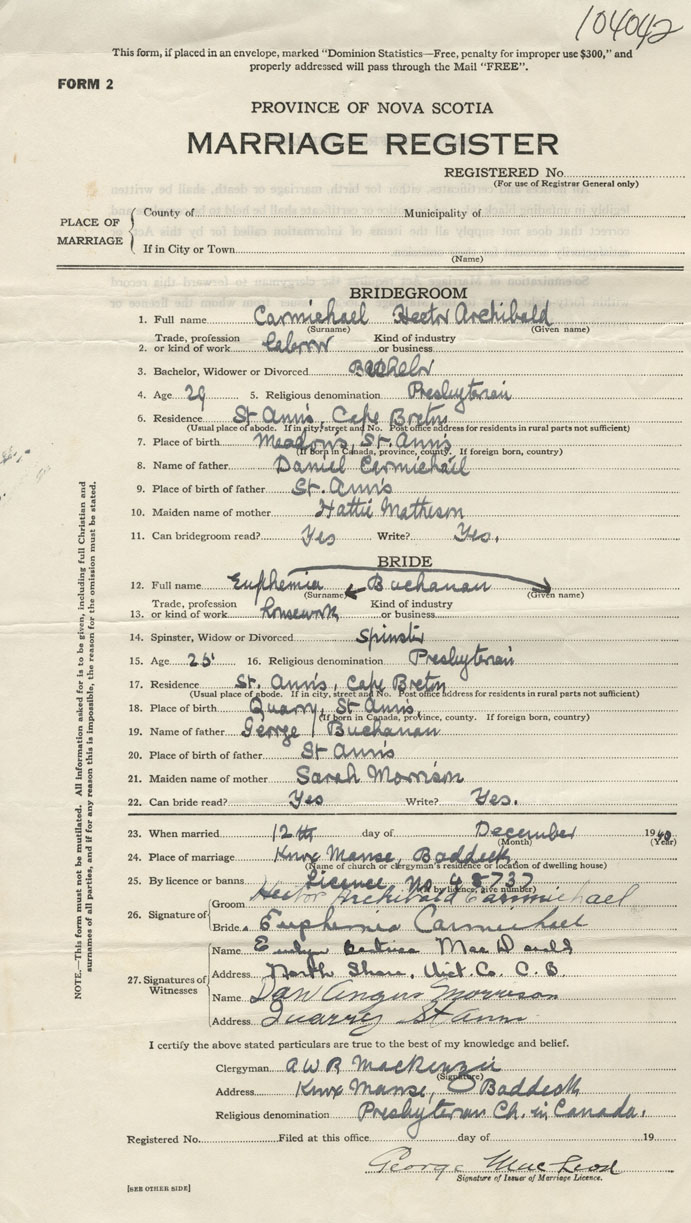 104042
This form, if placed in an envelope, marked "Dominion Statistics—Free, penalty for improper use $300," and
properly addressed will pass through the Mail "FREE".
FORM 2
PROVINCE OF NOVA SCOTIA
MARRIAGE REGISTER
REGISTERED No.
(For use of Registrar General only)
PLACE OF MARRIAGE
County of
Municipality of
If in City or Town
(Name)
BRIDEGROOM
1. Full name Carmichael Hector Archibald
(Surname) (Given name)
Trade, profession Kind of industry
2. or kind of work Labour or business
3. Bachelor, Widower or Divorced Bachelor
4. Age 29 5. Religious denomination Presbyterian
6. Residence St Ann's, Cape Breton
(Usual place of abode. If in city, street and No. Post office address for residents in rural parts not sufficient)
7. Place of birth Meadows, St. Ann's
(If born in Canada, province, county. If foreign born, country)
8. Name of father Daniel Carmichael
9. Place of birth of father St. Ann's
10. Maiden name of mother Hattie Matheson
11. Can bridegroom read? Yes Write? Yes.
BRIDE
12. Full name Euphemia Buchanan
(Surname) (Given name)
Trade, profession Kind of industry
13. or kind of work housework or business
14. Spinster, Widow or Divorced Spinster
15. Age 25 16. Religious denomination Presbyterian
17. Residence St. Ann's, Cape Breton
(Usual place of abode. If in city, street and No. Post office address for residents in rural parts not sufficient)
18. Place of birth Quarry, St Ann's
(If born in Canada, province, county. If foreign born, country)
19. Name of father George Buchanan
20. Place of birth of father St Ann's
21. Maiden name of mother Sarah Morrison
22. Can bride read? Yes Write? Yes.
23. When married 12th day of December 1940
(Month) (Year)
24. Place of marriage Knox Manse, Baddeck
(Name of church or clergyman's residence or location of dwelling house)
25. By licence or banns Licence No 48737
(If by licence, give number)
26. Signature of
Groom Hector Archibald Carmichael
Bride Euphemia Carmichael
27. Signatures of Witnesses
Name Evelyn Beatrice MacDonald
Address North Shore, Vict. Co. C. B.
Name Dan Angus Morrison
Address Quarry St Anns
I certify the above stated particulars are true to the best of my knowledge and belief.
Clergyman A W R MacKenzie
(Signature)
Address Knox Manse, Baddeck
Religious denomination Presbyterian Ch. in Canada.
Registered No. Filed at this office day of 19
George MacLeod
Signature of Issuer of Marriage Licence.
[SEE OTHER SIDE]
NOTE.—This form must not be mutilated. All information asked for is to be given, including full Christian and
surnames of all parties, and if for any reason this is impossible, the reason for the omission must be stated.